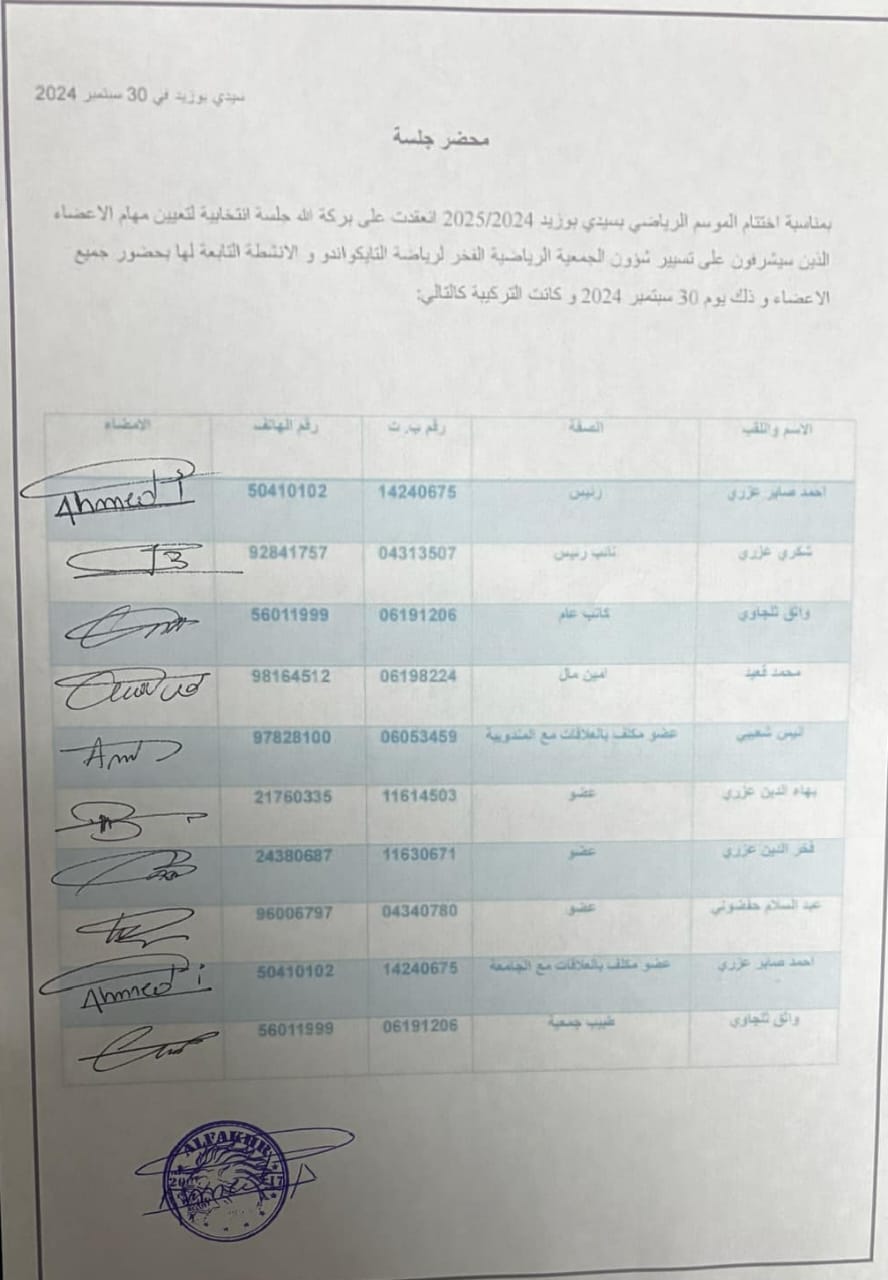 سيدي بوزيد في 30 سبتمبر 2024
محضر جلسة
بمناسبة اختتام الموسم الرياضي بسيدي بوزيد 2025/2024 انعقدت على بركة الله جلسة انتخابية لتعيين مهام الاعضاء
الذين سيشرفون على تسيير شؤون الجمعية الرياضية الفخر لرياضة التايكواندو و الانشطة التابعة لها بحضور جميع
الاعضاء و ذلك يوم 30 سبتمبر 2024 و كانت التركيبة كالتالي:
الاسم واللقب الصفة رقم ب.ت رقم الهاتف الامضاء
احمد صابر عزري رئيس 14240675 50410102 Ahmed
شكري عزري نائب رئيس 04313507 92841757
واثق تلجاوي كاتب عام 06191206 56011999
محمد قعيد امين مال 06198224 98164512
انيس شعيبي عضو مكلف بالعلاقات مع المندوبية 06053459 97828100
بهاء الدين عزري عضو 11614503 21760335
فخر الدين عزري عضو 11630671 24380687
عبد السلام حفضوني عضو 04340780 96006797
احمد صابر عزري عضو مكلف بالعلاقات مع الجامعة 14240675 50410102 Ahmed
واثق تلجاوي طبيب جمعية 06191206 56011999
ALFAKHR
2017